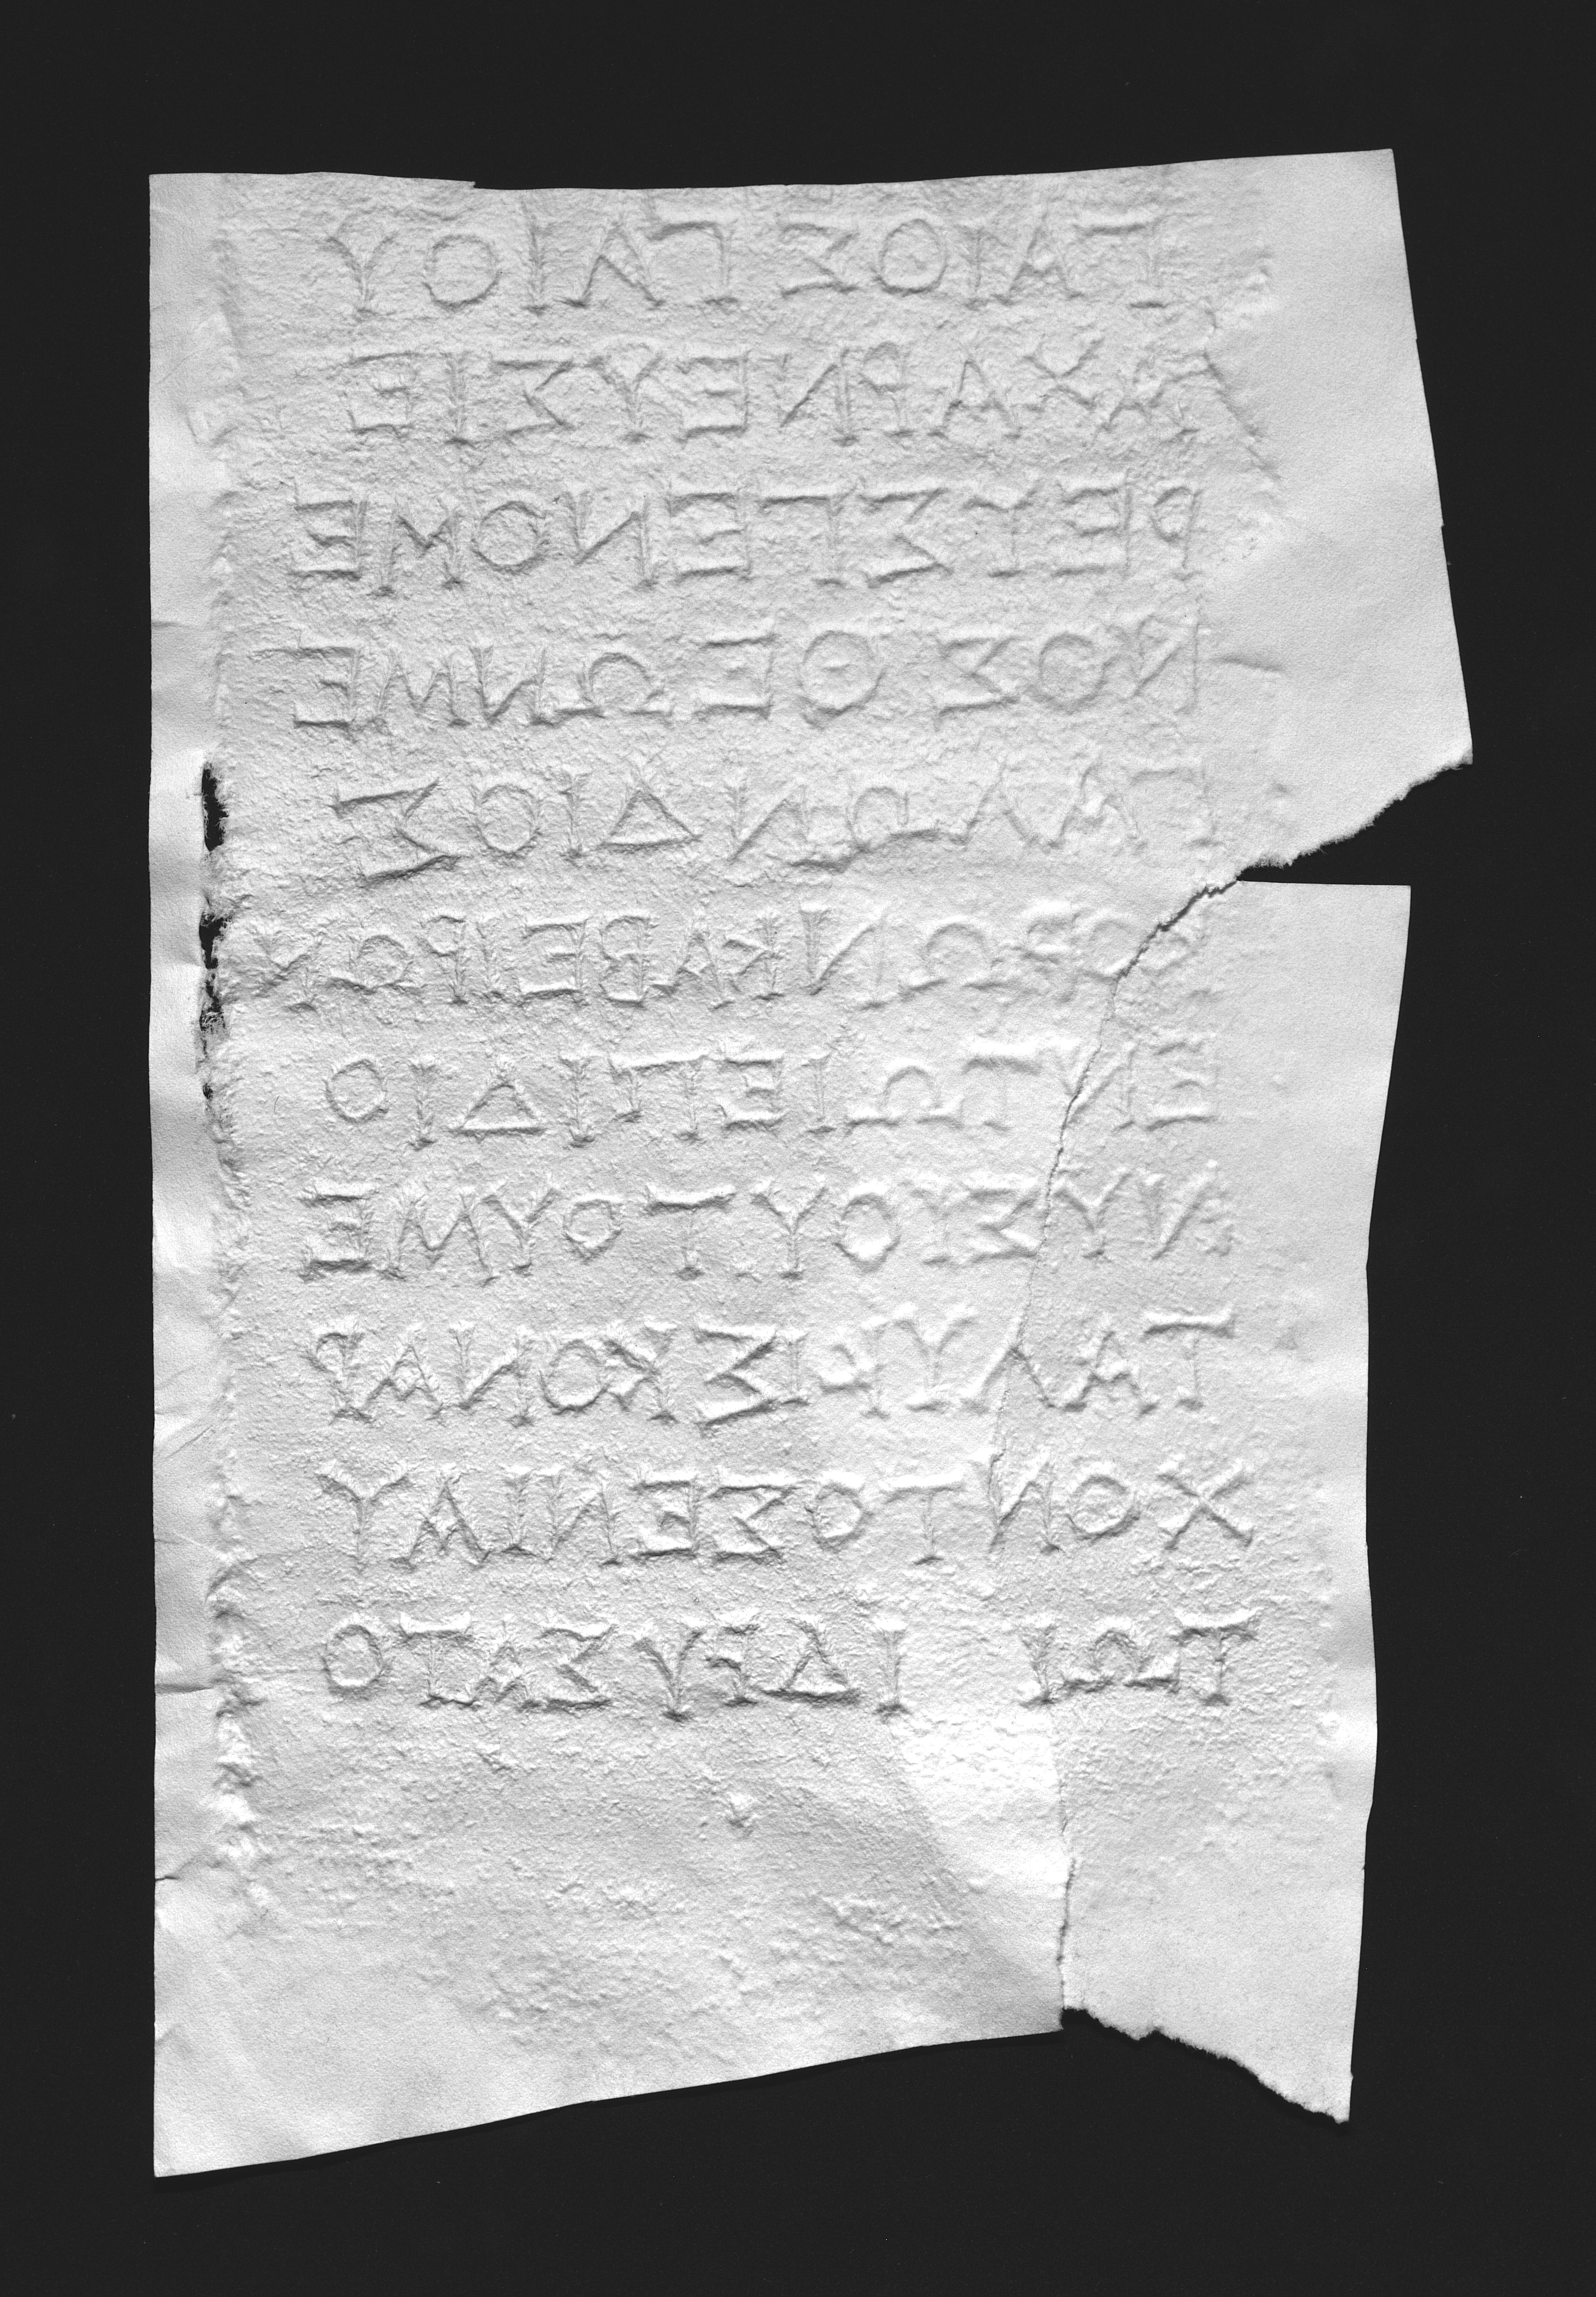 ΓΑΙΟΣΓΑΙΟΥ
ΑΧΑΡΝΕΥΣΙΕ
ΡΕΥΣΓΕΝΟΜΕ
ΝΟΣΘΕΩΝΜΕ
ΓΑΛΩΝΔΙΟΣ
ΚΟΡΩΝΚΑΒΕΙΡΩΝ
ΕΝΤΩΙΕΠΙΔΙΟ
ΝΥΣΙΟΥΤΟΥΜΕ
ΤΑΛΥΚΙΣΚΟΝΑΡ
ΧΟΝΤΟΣΕΝΙΑΥ
ΤΩΙ ΙΔΡΥΣΑΤΟ